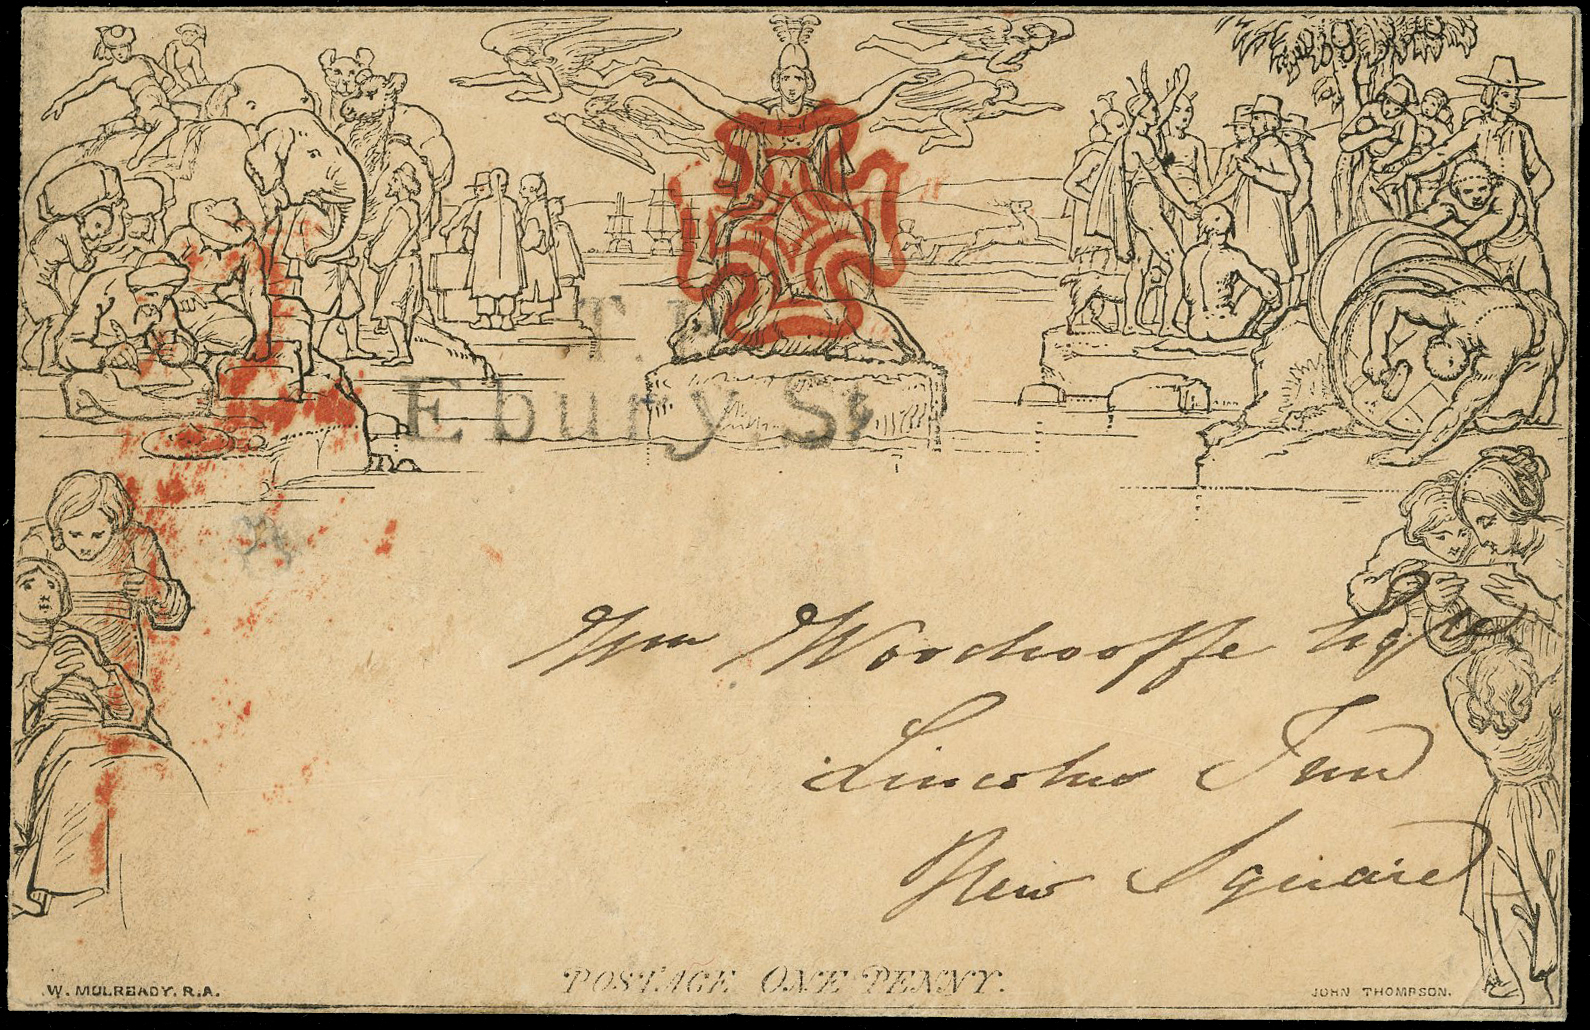 T.P
Ebury St
Wm Woodrooffe Esqre
Lincolns Inn
New Square
POSTAGE ONE PENNY.
W. MULREADY, R.A.
JOHN THOMPSON.